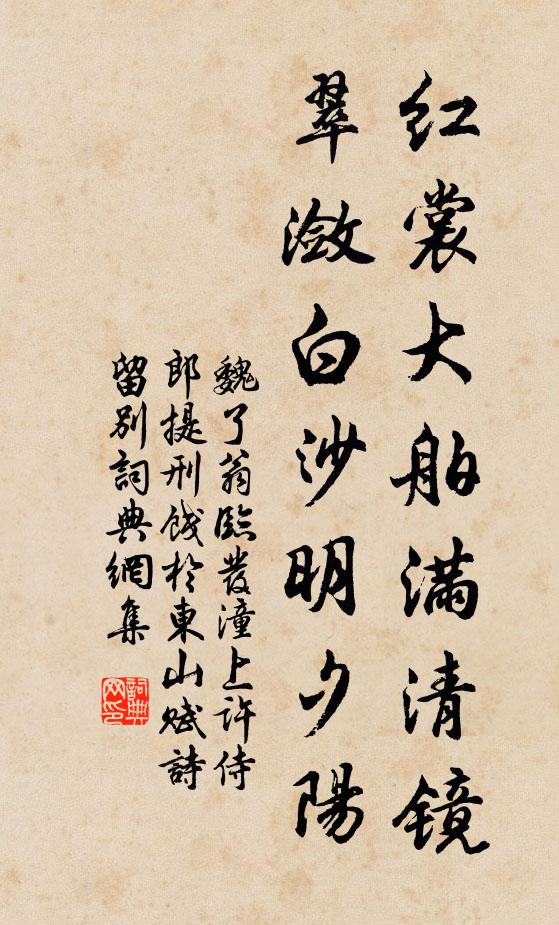 红裳大舶满清镜
翠潋白沙明夕陽
魏了翁臨發潼上許侍
郎提刑餞於東山賦詩
留別詞典網集
詞典网印